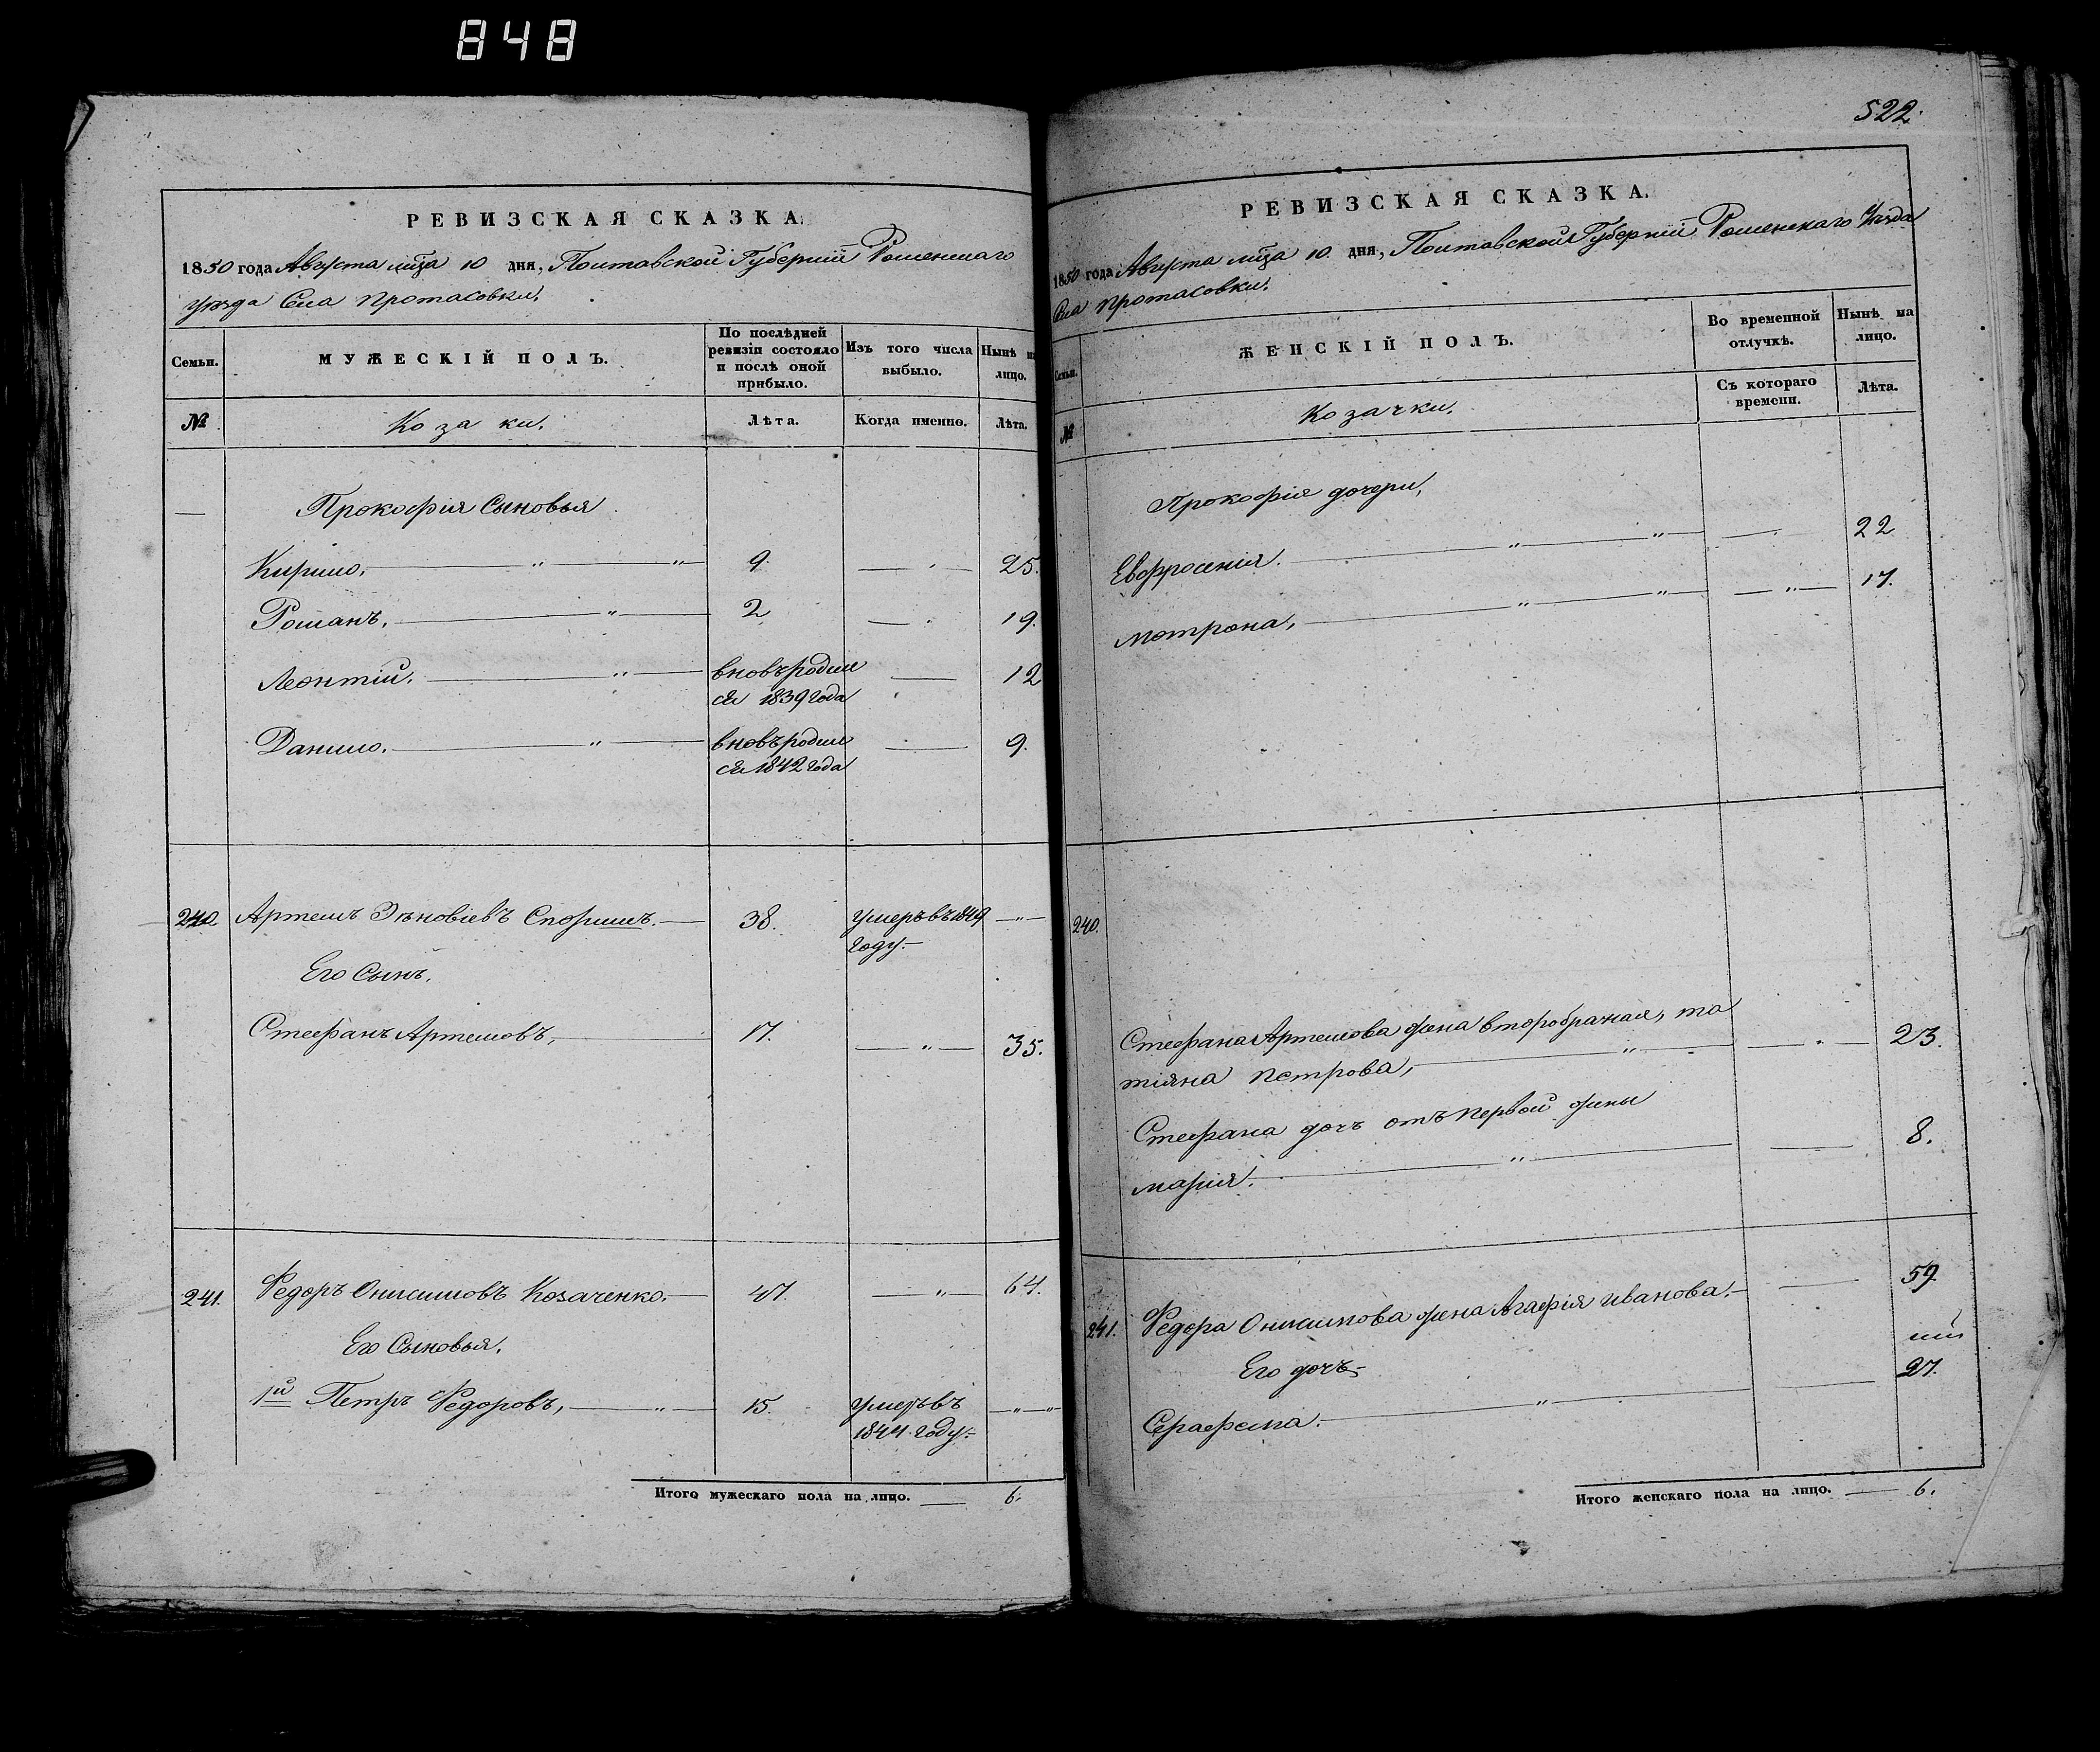 848
РЕВИЗСКАЯ СКАЗКА.
1850 года Августа мца 10 дня, Полтавской Губерніи Роменскаго
уезда Села Протасовки.
Семьи.
МУЖЕСКІЙ ПОЛЪ.
По послѣдней
ревизіи состояло
и послѣ оной
прибыло.
Изъ того числа
выбыло.
Нынѣ на
лицо.
№
Козаки.
Лѣта.
Когда именно.
Лѣта.
Прокофія Сыновья
Кирило. 9 25.
Романъ. 2 19.
Леонтій. вновьродил 12
ся 1839 года
Данило. вновьродил 9.
ся 1842 года
240 Артемъ Зѣновіевъ Спориш. 38. умеръ въ 1849
году.
Его Сынъ.
Стефанъ Артемовъ, 17. 35.
241. Федоръ Онисимовъ Козаченко. 47. 64.
Его Сыновья.
1й Петръ Федоровъ, 15. умеръ въ
1844 году.
Итого мужескаго пола на лицо. 6.
522.
РЕВИЗСКАЯ СКАЗКА.
1850 года Августа мца 10 дня, Полтавской Губерніи Роменскаго Уезда
Села Протасовки.
Семьи.
ЖЕНСКІЙ ПОЛЪ.
Во временной
отлучкѣ.
Нынѣ на
лицо.
№
Козачки.
Съ котораго
времени.
Лѣта.
Прокофія дочери,
Евфросенія. 22
Мотрона, 17.
240.
Стефана Артемова жена второбрачная, та
тіяна Петрова, 23.
Стефана дочь отъ первой жены
Марія. 8.
241. Федора Онисимова жена Агафія Иванова. 59.
Его дочь
Серафема. 27.
Итого женскаго пола на лицо. 6.